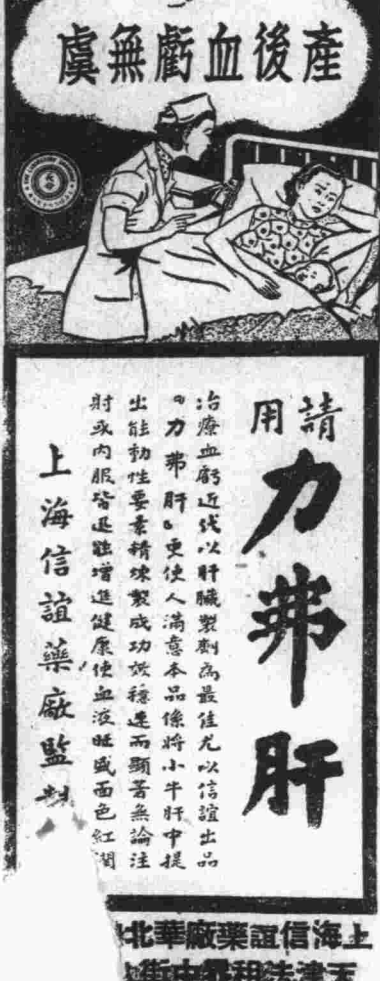 產後血虧無虞
請用
力弗肝
治療血虧近代以肝臟製劑為最佳尤以信誼出品
『力弗肝』更使人滿意本品係將小牛肝中提
出能動性要素精煉製成功效穩速而顯著無論注
射或內服皆迅能增進健康使血液旺盛面色紅潤
上海信誼藥廠監制
上海信誼藥廠華北
天津法租界中街